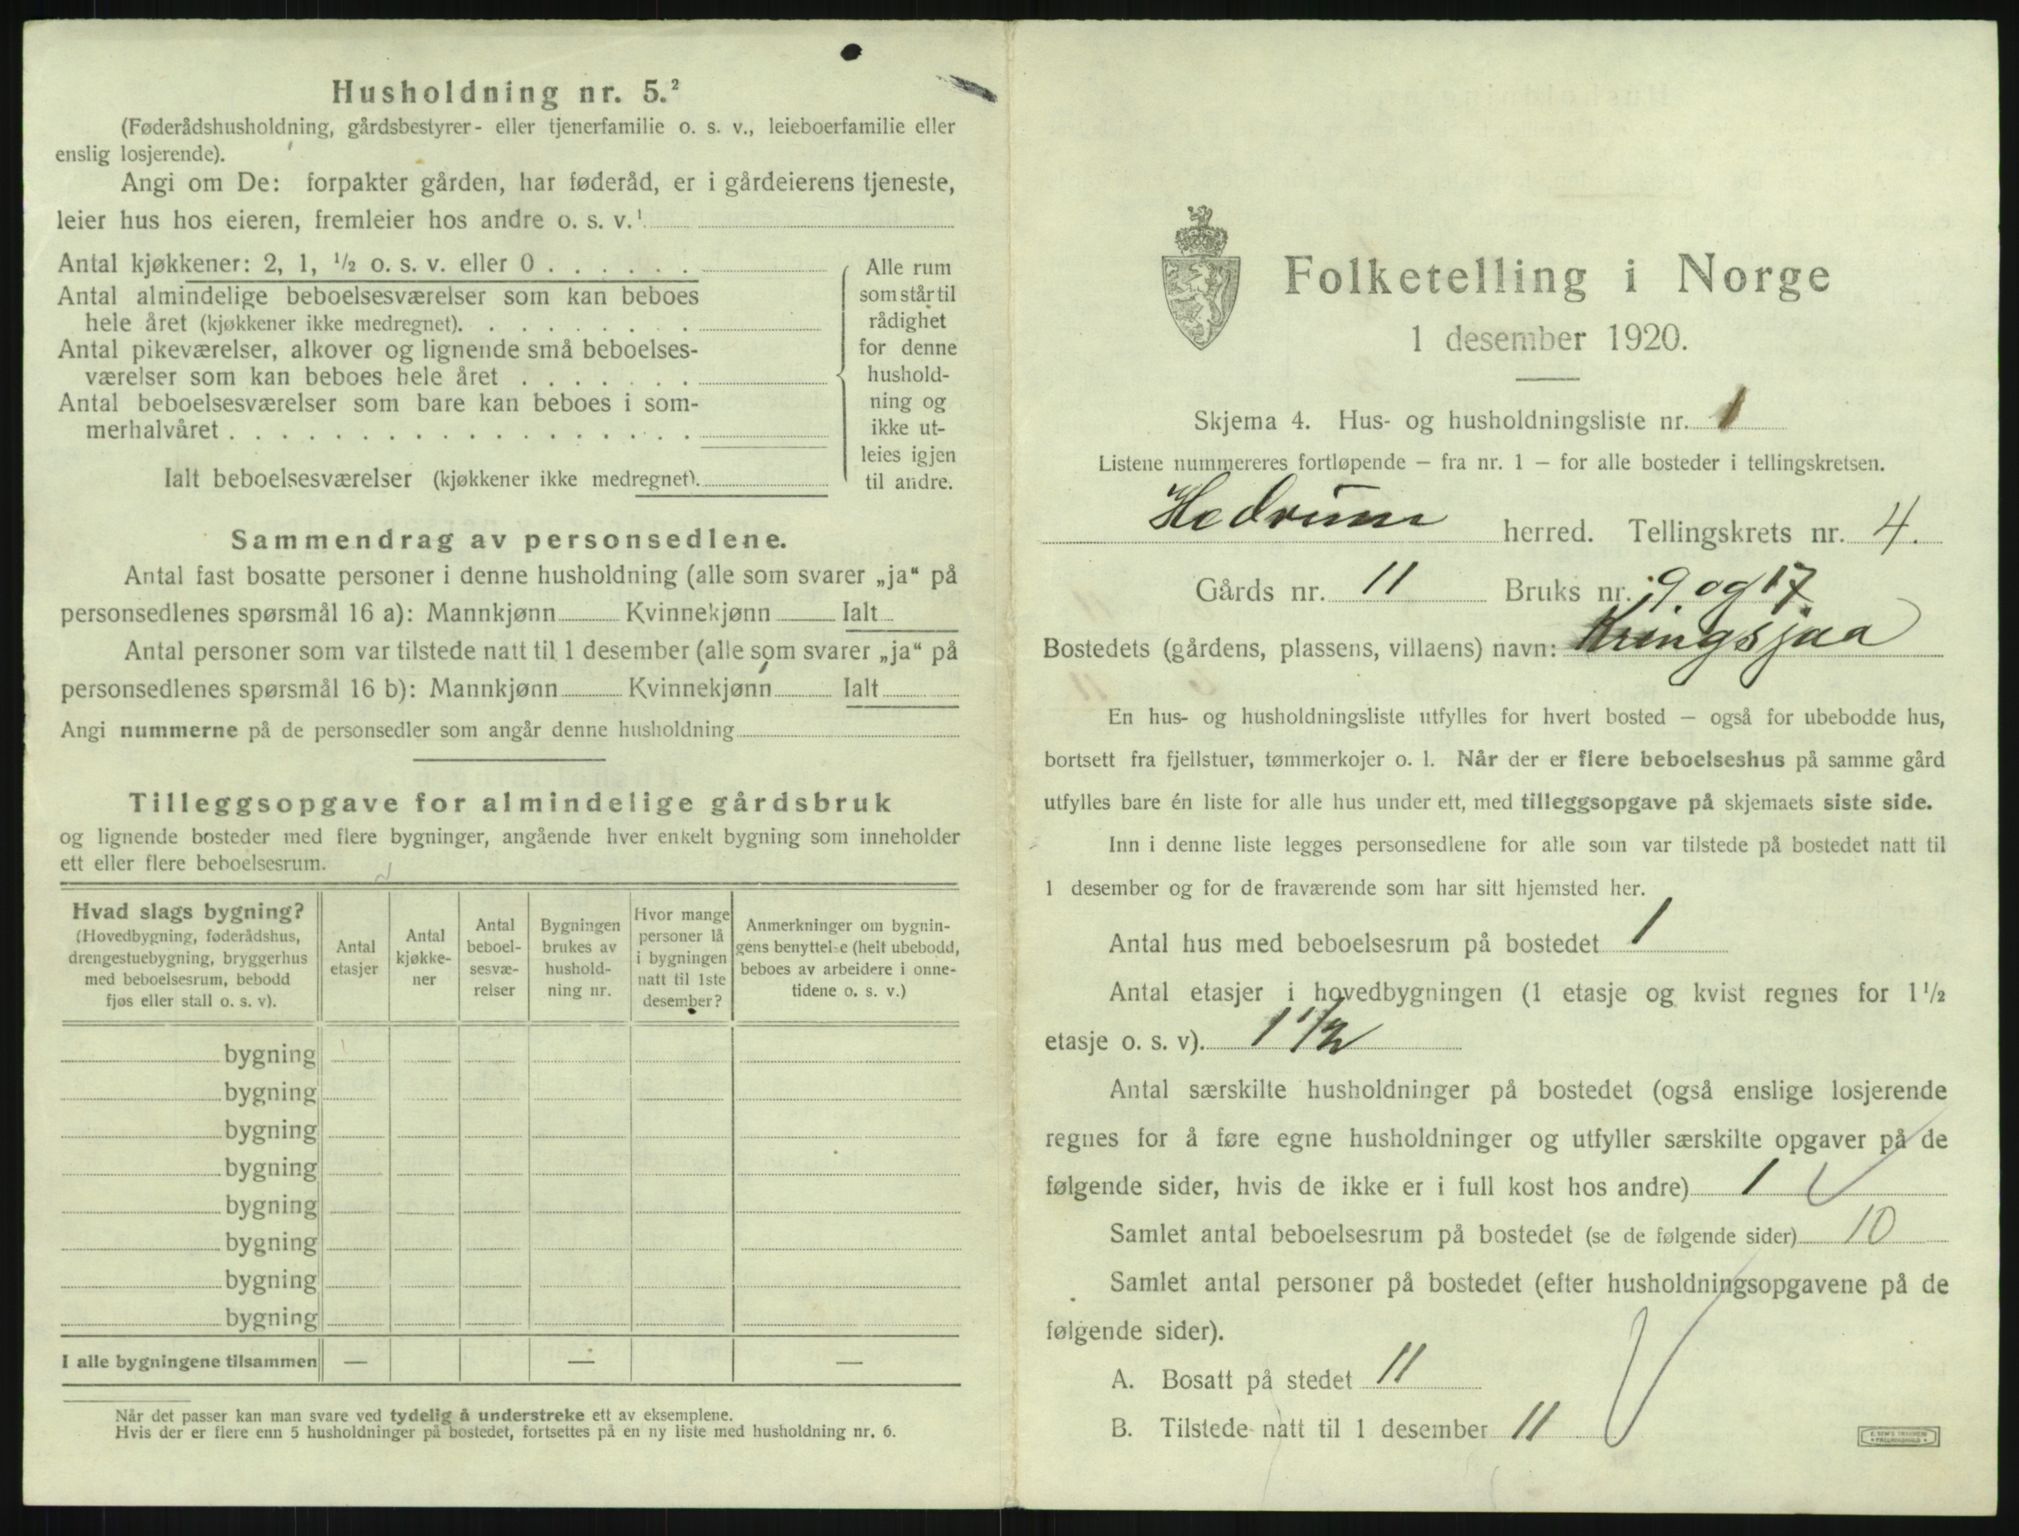 Husholdning nr. 5.²
(Føderådshusholdning, gårdsbestyrer- eller tjenerfamilie o. s. v., leieboerfamilie eller
enslig losjerende).
Angi om De: forpakter gården, har føderåd, er i gårdeierens tjeneste,
leier hus hos eieren, fremleier hos andre o. s. v.¹
Antal kjøkkener: 2, 1, ½ o. s. v. eller 0 . . . . . .
Antal almindelige beboelsesværelser som kan beboes
hele året (kjøkkener ikke medregnet). . . . . . . . .
Antal pikeværelser, alkover og lignende små beboelses-
værelser som kan beboes hele året . . . . . . .
Antal beboelsesværelser som bare kan beboes i som-
merhalvåret . . . . . . . . . . . . . . . . . .
Ialt beboelsesværelser (kjøkkener ikke medregnet).
Alle rum
som står til
rådighet
for denne
hushold-
ning og
ikke ut-
leies igjen
til andre.
Sammendrag av personsedlene.
Antal fast bosatte personer i denne husholdning (alle som svarer „ja“ på
personsedlenes spørsmål 16 a): Mannkjønn Kvinnekjønn Ialt
Antal personer som var tilstede natt til 1 desember (alle som svarer „ja“ på
personsedlenes spørsmål 16 b): Mannkjønn Kvinnekjønn Ialt
Angi nummerne på de personsedler som angår denne husholdning
Tilleggsopgave for almindelige gårdsbruk
og lignende bosteder med flere bygninger, angående hver enkelt bygning som inneholder
ett eller flere beboelsesrum.
Hvad slags bygning?
(Hovedbygning, føderådshus,
drengestuebygning, bryggerhus
med beboelsesrum, bebodd
fjøs eller stall o. s. v).
Antal
etasjer
Antal
kjøkke-
ner
Antal
beboel-
sesvæ-
relser
Bygningen
brukes av
hushold-
ning nr.
Hvor mange
personer lå
i bygningen
natt til 1ste
desember?
Anmerkninger om bygnin-
gens benyttelse (helt ubebodd,
beboes av arbeidere i onne-
tidene o. s. v.)
bygning
bygning
bygning
bygning
bygning
bygning
bygning
bygning
I alle bygningene tilsammen — — —
Når det passer kan man svare ved tydelig å understreke ett av eksemplene.
Hvis der er flere enn 5 husholdninger på bostedet, fortsettes på en ny liste med husholdning nr. 6.
Folketelling i Norge
1 desember 1920.
Skjema 4. Hus- og husholdningsliste nr. 1
Listene nummereres fortløpende – fra nr. 1 – for alle bosteder i tellingskretsen.
Hedrum herred. Tellingskrets nr. 4.
Gårds nr. 11 Bruks nr. 9 og 17
Bostedets (gårdens, plassens, villaens) navn: Kringsjaa
En hus- og husholdningsliste utfylles for hvert bosted – også for ubebodde hus,
bortsett fra fjellstuer, tømmerkojer o. l. Når der er flere beboelseshus på samme gård
utfylles bare én liste for alle hus under ett, med tilleggsopgave på skjemaets siste side.
Inn i denne liste legges personsedlene for alle som var tilstede på bostedet natt til
1 desember og for de fraværende som har sitt hjemsted her.
Antal hus med beboelsesrum på bostedet 1
Antal etasjer i hovedbygningen (1 etasje og kvist regnes for 1½
etasje o. s. v). 1 1/2
Antal særskilte husholdninger på bostedet (også enslige losjerende
regnes for å føre egne husholdninger og utfyller særskilte opgaver på de
følgende sider, hvis de ikke er i full kost hos andre) 1
Samlet antal beboelsesrum på bostedet (se de følgende sider) 10
Samlet antal personer på bostedet (efter husholdningsopgavene på de
følgende sider).
A. Bosatt på stedet 11
B. Tilstede natt til 1 desember 11